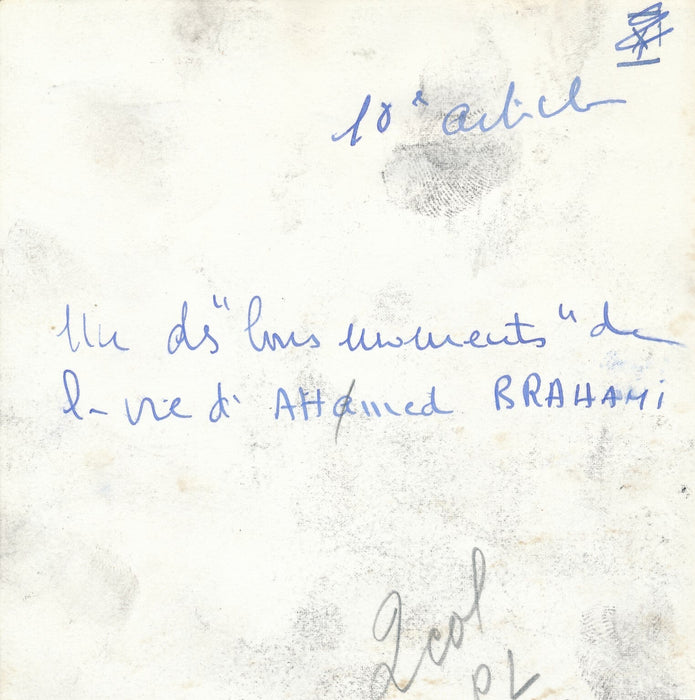 10e article
Un des "bons moments" de
la vie d'AHamed BRAHAMI
2 col